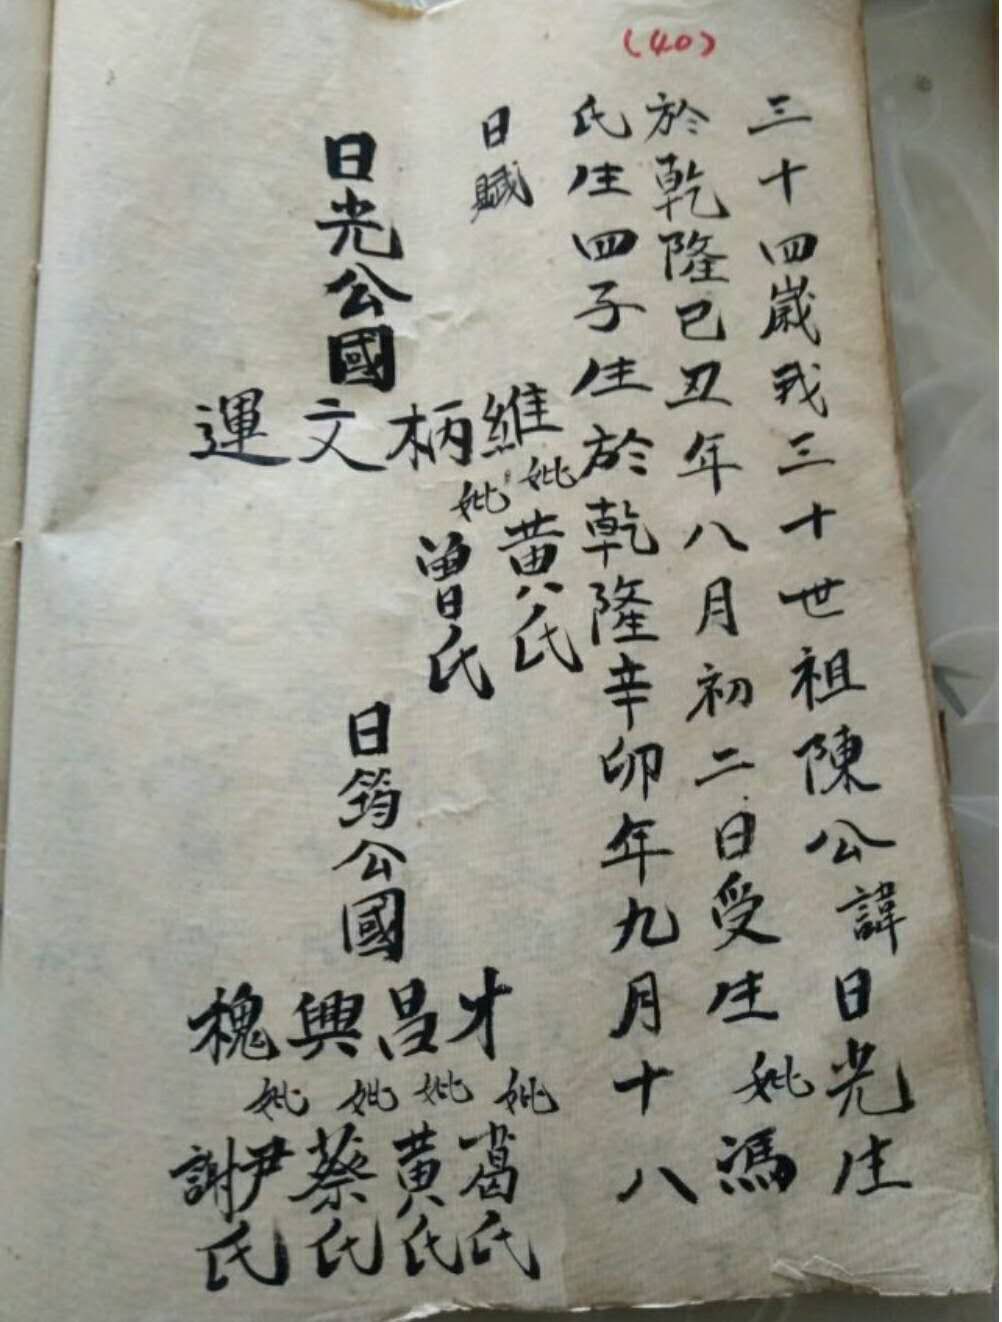 (40)
三十四歲戰三十世祖陳公諱日光生
於乾隆己丑年八月初二日受生妣馮
氏生四子生於乾隆辛卯年九月十八
日賦
日光公國
維妣黃氏
柄妣曾氏
文
運
日筠公國
才妣葛氏
昌妣黃氏
興妣蔡氏
槐妣尹謝氏